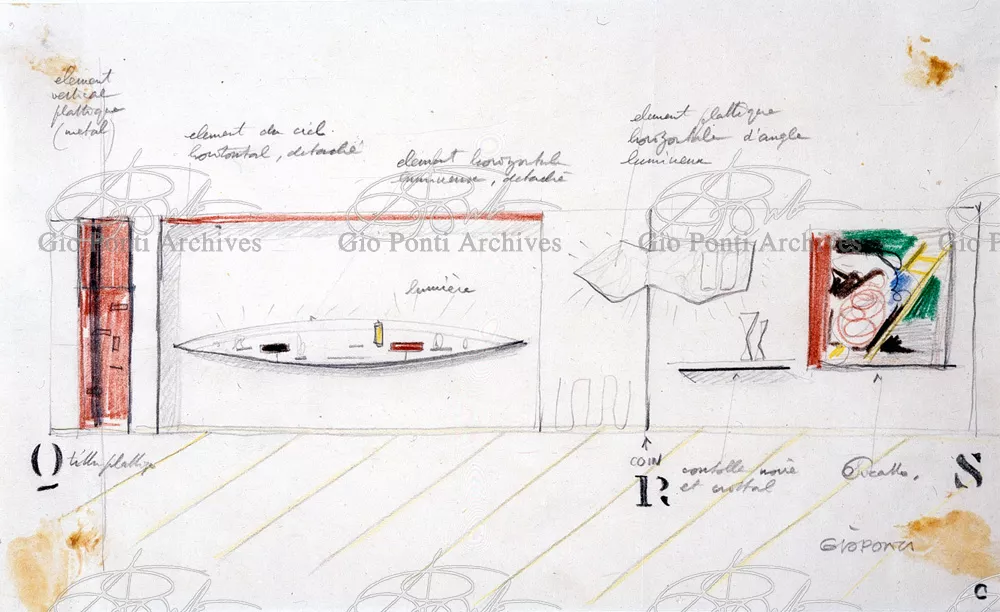 element
vertical
plastique
(metal)
element du ciel
horizontal, detaché
element horizontale
lumineuse, detaché
element plastique
horizontale d'angle
lumineux
Gio Ponti Archives
Gio Ponti Archives
Gio Ponti Archives
Gio Ponti Archives
lumière
Q
COIN
R
consolle noire
et cristal
Picasso.
S
GIO PONTI
C